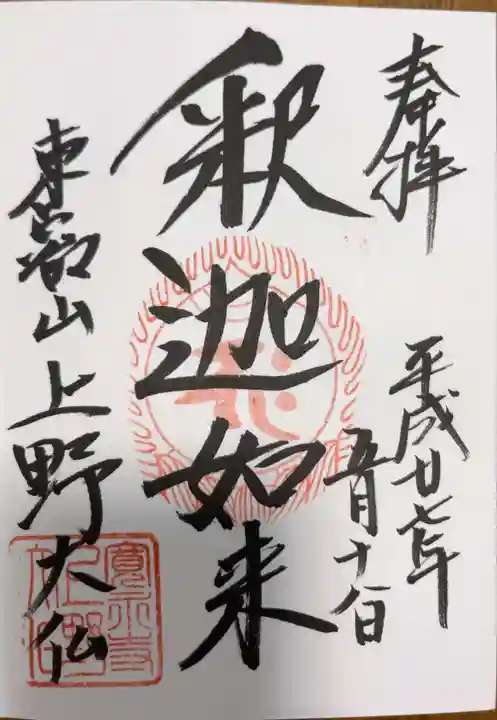 奉拝
平成廿七年
五月十八日
釈迦如来
東叡山上野大仏
寛永寺